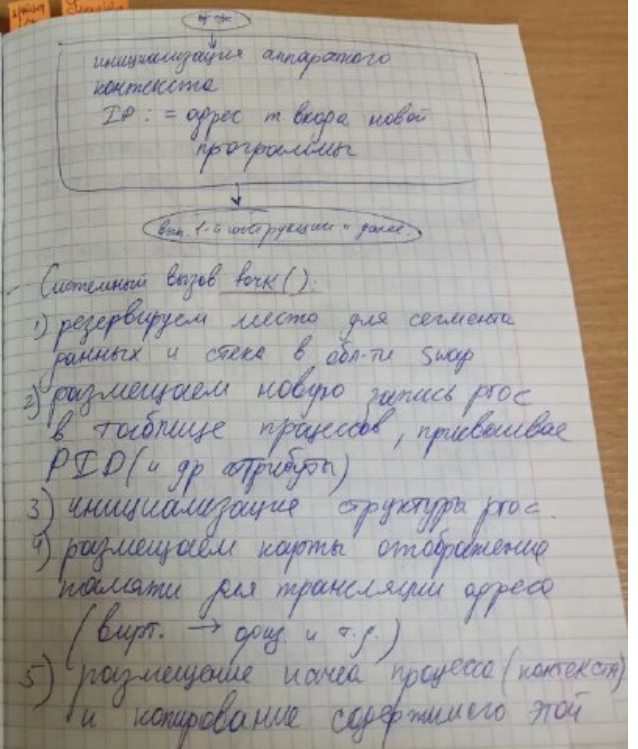 инициализация аппаратного
контекста
IP := адрес т входа новой
программы
вып. 1-й инструкции и далее.
Системный вызов fork():
1) резервируем место для сегмента
данных и стека в обл-ти swap
2) размещаем новую запись proc
в таблице процессов, присваивае
PID (и др атрибуты)
3) инициализация структуры proc.
4) размещаем карты отображение
памяти для трансляции адреса
(вирт. → физ. и т.д.)
5) размещение процесса (контекст)
и копирование содержимого этой